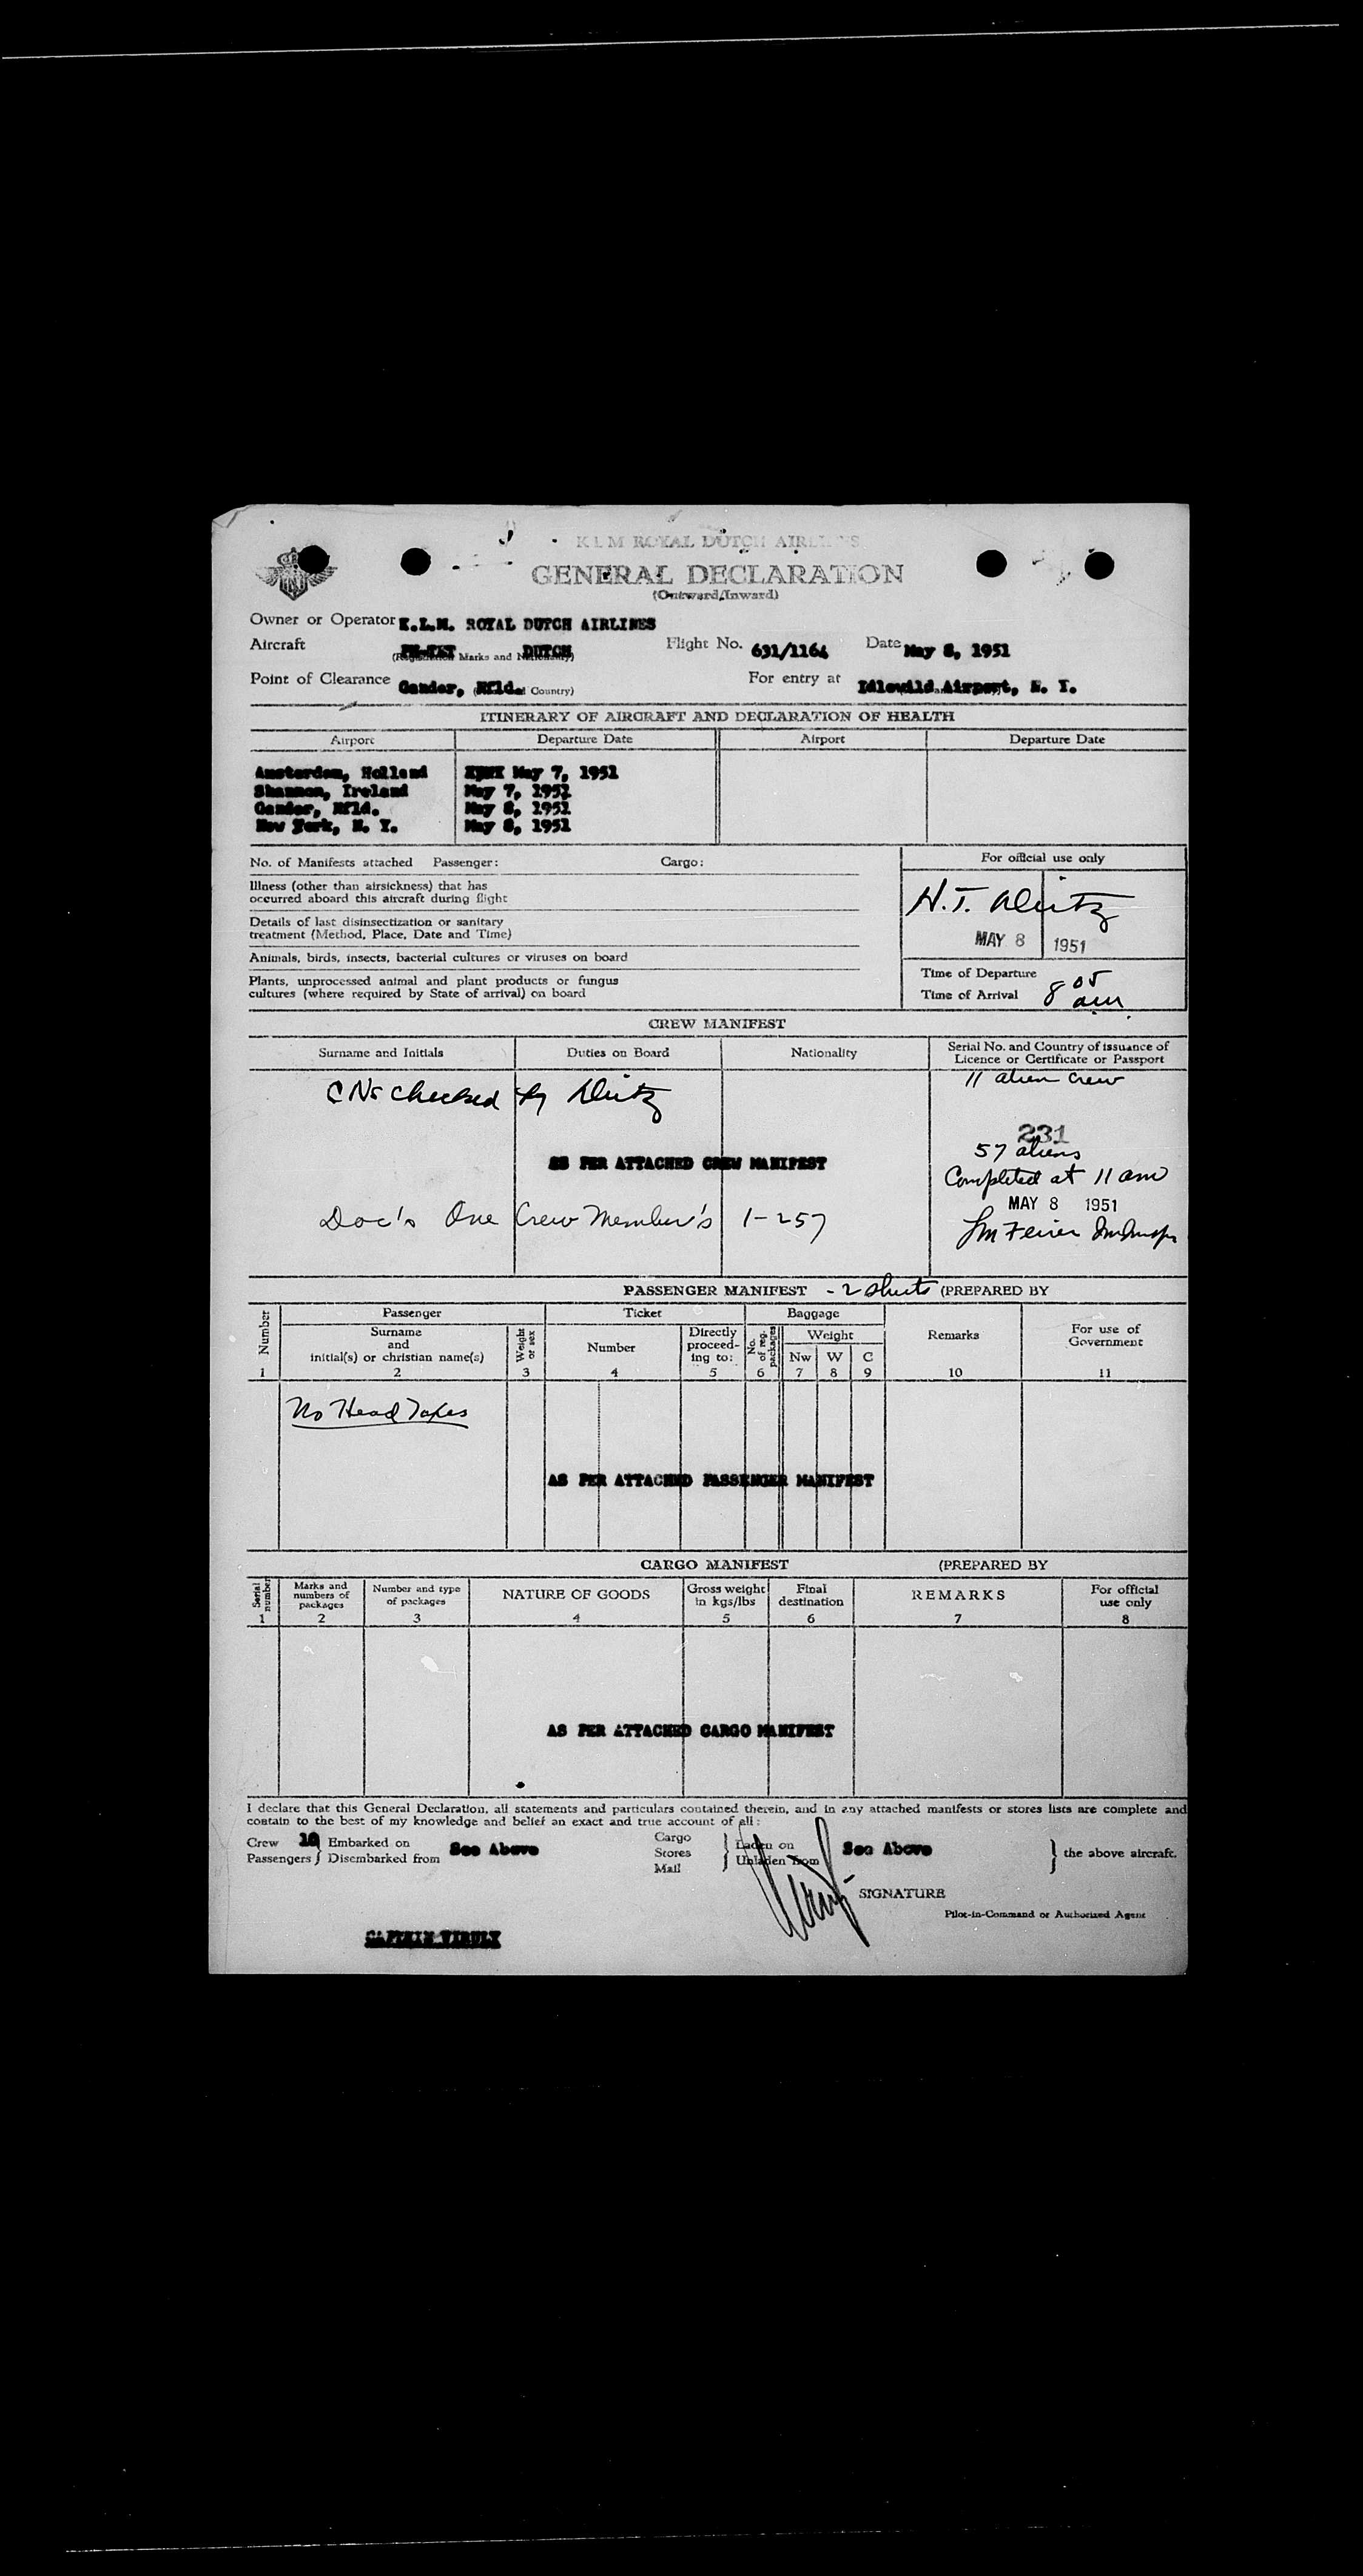 K L M ROYAL DUTCH AIRLINES
GENERAL DECLARATION
(Outward/Inward)
Owner or Operator K.L.M. ROYAL DUTCH AIRLINES
Aircraft DUTCH Flight No. 631/1164 Date May 8, 1951
(Registration Marks and Nationality)
Point of Clearance Gander, Nfld. Country) For entry at Idlewild Airport, N. Y.
ITINERARY OF AIRCRAFT AND DECLARATION OF HEALTH
Airport Departure Date Airport Departure Date
Amsterdam, Holland May 7, 1951
Shannon, Ireland May 7, 1951
Gander, Nfld. May 8, 1951
New York, N. Y. May 8, 1951
No. of Manifests attached Passenger: Cargo: For official use only
Illness (other than airsickness) that has
occurred aboard this aircraft during flight
H.T.
Details of last disinsectization or sanitary
treatment (Method, Place, Date and Time)
MAY 8 1951
Animals, birds, insects, bacterial cultures or viruses on board
Plants, unprocessed animal and plant products or fungus
cultures (where required by State of arrival) on board
Time of Departure
Time of Arrival 8 05 am
CREW MANIFEST
Surname and Initials Duties on Board Nationality Serial No. and Country of issuance of
Licence or Certificate or Passport
11 alien crew
checked by
231
57 aliens
AS PER ATTACHED CREW MANIFEST
Completed at 11 am
MAY 8 1951
Doc's One Crew Member's 1-257
PASSENGER MANIFEST - 2 sheets (PREPARED BY
Number Passenger Ticket Baggage
Surname
and
initial(s) or christian name(s)
Weight or sex
Number
Directly
proceed-
ing to:
No. of reg. packages
Weight
Remarks
For use of
Government
Nw W C
1 2 3 4 5 6 7 8 9 10 11
No Head Taxes
AS PER ATTACHED PASSENGER MANIFEST
CARGO MANIFEST (PREPARED BY
Serial number
Marks and
numbers of
packages
Number and type
of packages
NATURE OF GOODS
Gross weight
in kgs/lbs
Final
destination
REMARKS
For official
use only
1 2 3 4 5 6 7 8
AS PER ATTACHED CARGO MANIFEST
I declare that this General Declaration, all statements and particulars contained therein, and in any attached manifests or stores lists are complete and
contain to the best of my knowledge and belief an exact and true account of all:
Crew 10 Embarked on See Above Cargo Laden on See Above the above aircraft.
Passengers Disembarked from Stores Unladen from
Mail
SIGNATURE
Pilot-in-Command or Authorized Agent
CAPTAIN VIRULY